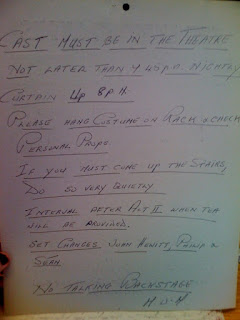 CAST MUST BE IN THE THEATRE
NOT LATER THAN 7.45p.m. NIGHTLY
CURTAIN Up 8 P.M.
PLEASE HANG COSTUME ON RACK & CHECK
PERSONAL PROPS
IF YOU MUST COME UP THE STAIRS,
DO SO VERY QUIETLY
INTERVAL AFTER ACT II WHEN TEA
WILL BE PROVIDED.
SET CHANGES JOHN HEWITT, PHILIP &
NO TALKING BACKSTAGE